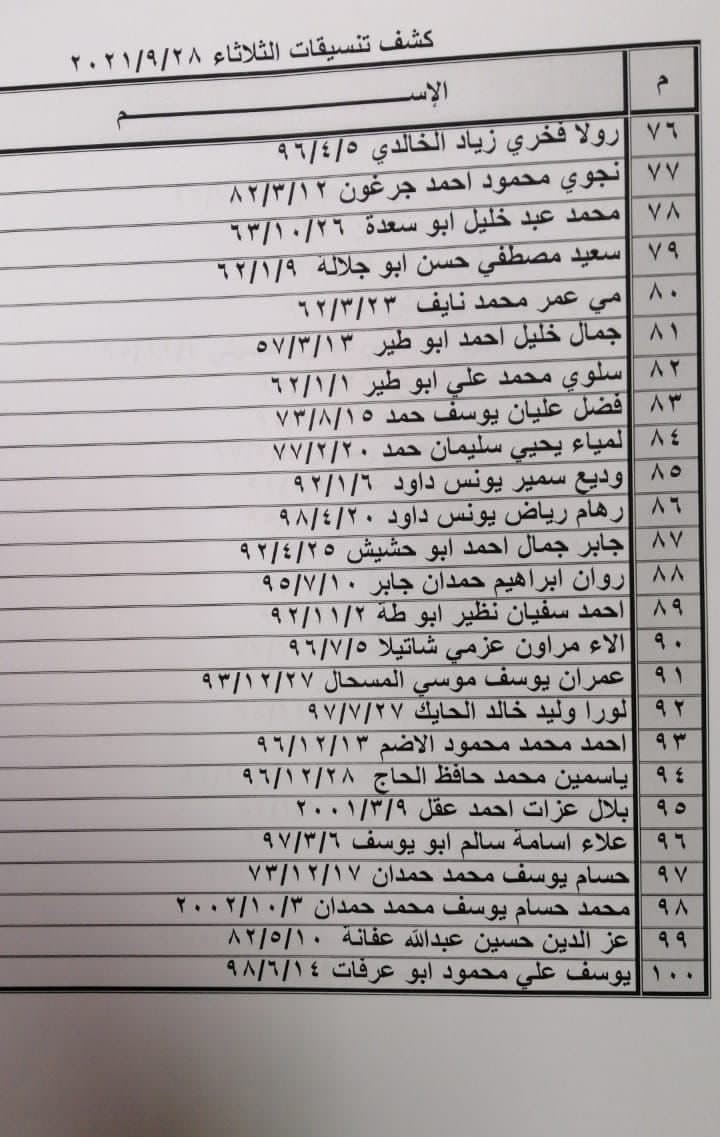 كشف تنسيقات الثلاثاء ٢٠٢١/٩/٢٨
م الإســـــــــم
٧٦ رولا فخري زياد الخالدي ٩٦/٤/٥
٧٧ نجوي محمود احمد جرغون ٨٢/٣/١٢
٧٨ محمد عبد خليل ابو سعدة ٦٣/١٠/٢٦
٧٩ سعيد مصطفي حسن ابو جلالة ٦٢/١/٩
٨٠ مي عمر محمد نايف ٦٢/٣/٢٣
٨١ جمال خليل احمد ابو طير ٥٧/٣/١٣
٨٢ سلوي محمد علي ابو طير ٦٢/١/١
٨٣ فضل عليان يوسف حمد ٧٣/٨/١٥
٨٤ لمياء يحيي سليمان حمد ٧٧/٢/٢٠
٨٥ وديع سمير يونس داود ٩٢/١/٦
٨٦ رهام رياض يونس داود ٩٨/٤/٢٠
٨٧ جابر جمال احمد ابو حشيش ٩٢/٤/٢٥
٨٨ روان ابراهيم حمدان جابر ٩٥/٧/١٠
٨٩ احمد سفيان نظير ابو طة ٩٢/١١/٢
٩٠ الاء مراون عزمي شاتيلا ٩٦/٧/٥
٩١ عمران يوسف موسي المسحال ٩٣/١٢/٢٧
٩٢ لورا وليد خالد الحايك ٩٧/٧/٢٧
٩٣ احمد محمد محمود الاضم ٩٦/١٢/١٣
٩٤ ياسمين محمد حافظ الحاج ٩٦/١٢/٢٨
٩٥ بلال عزات احمد عقل ٢٠٠١/٣/٩
٩٦ علاء اسامة سالم ابو يوسف ٩٧/٣/٦
٩٧ حسام يوسف محمد حمدان ٧٣/١٢/١٧
٩٨ محمد حسام يوسف محمد حمدان ٢٠٠٢/١٠/٣
٩٩ عز الدين حسين عبدالله عفانة ٨٢/٥/١٠
١٠٠ يوسف علي محمود ابو عرفات ٩٨/٦/١٤